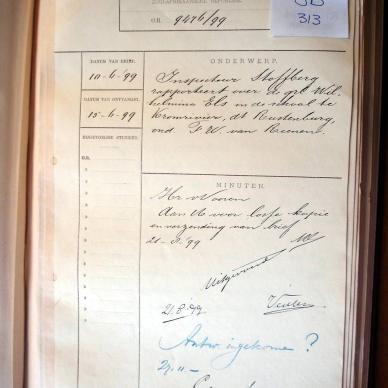 ZUID-AFRIKAANSCHE REPUBLIEK.
O.R. 9476/99
313
DATUM VAN BRIEF.
10-6-'99
DATUM VAN ONTVANGST.
15-6-'99
INGEVOEGDE STUKKEN.
O.R.
ONDERWERP.
Inspecteur Stoffberg
rapporteert over de Wil-
helmina Els in de school te
Kromrivier, dt Rustenburg,
ond F. W. van Reenen.
MINUTEN.
Hr.
Aan U voor kopie
en verzending van brief
99
Uitgevoerd
21.8.99
Antw. ingekomen?